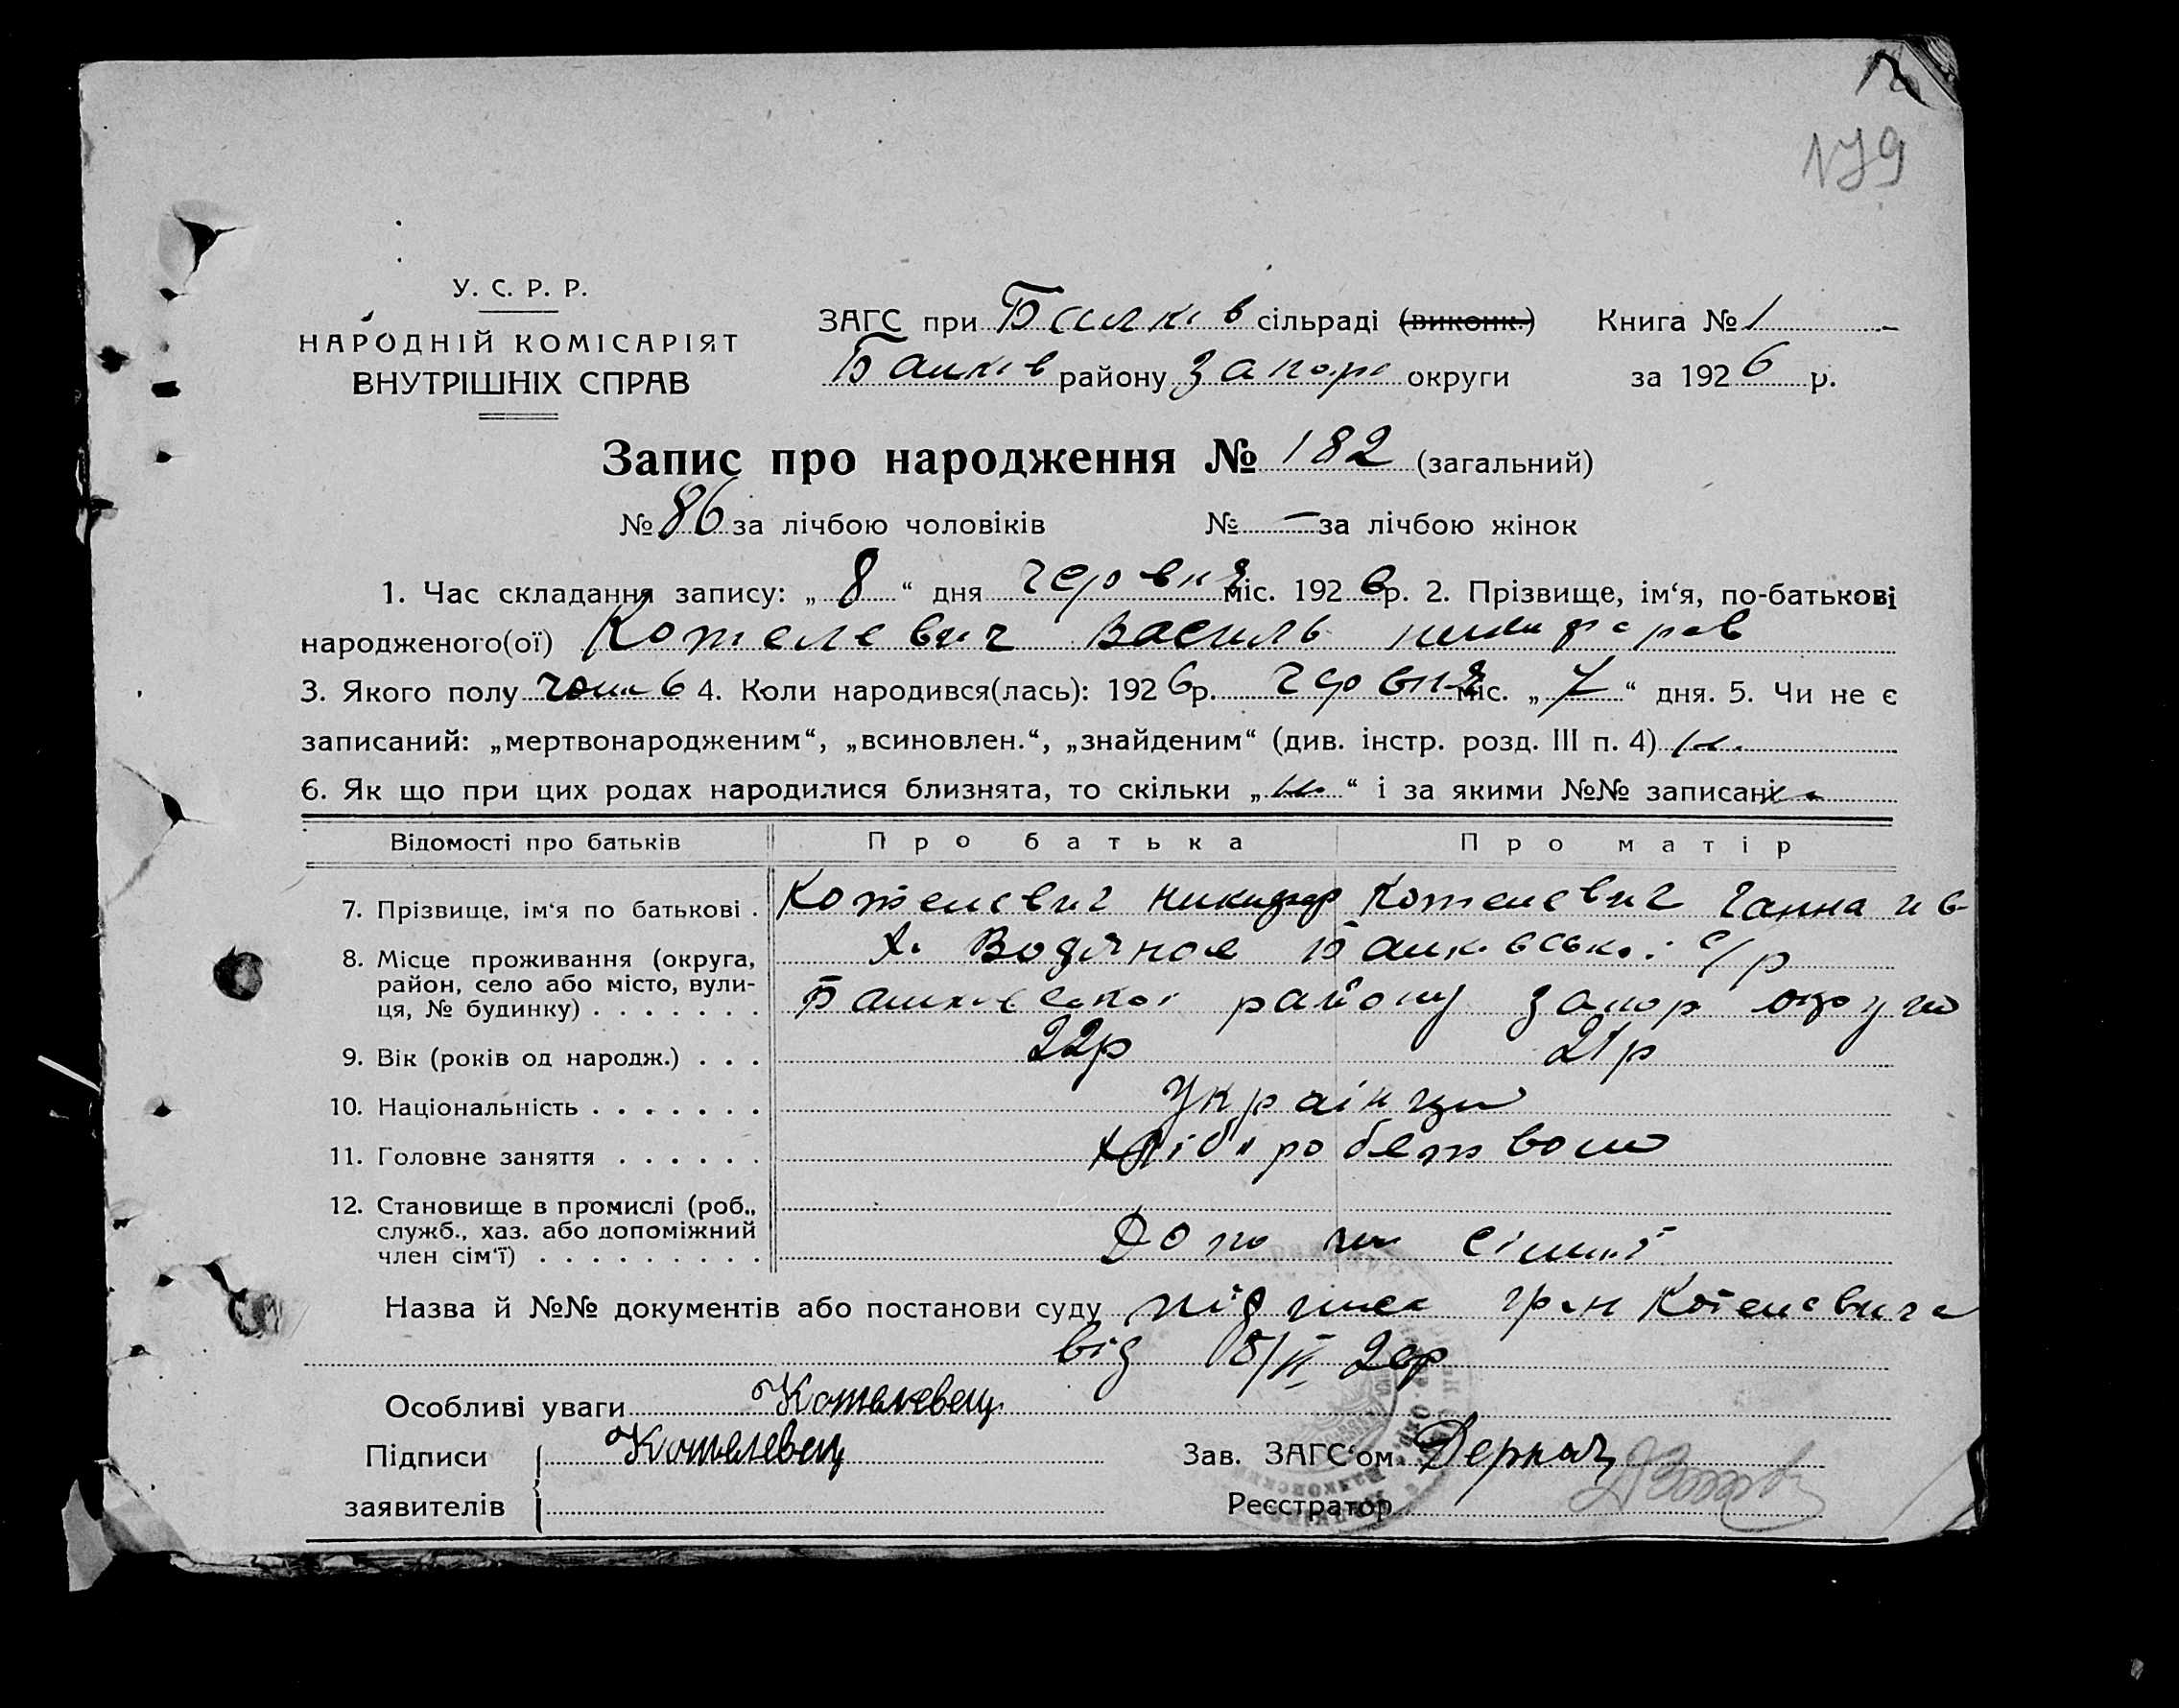 179
У. С. Р. Р.
НАРОДНІЙ КОМІСАРІЯТ
ВНУТРІШНІХ СПРАВ
ЗАГС при Балків сільраді (виконк.) Книга № 1
Балків району Запорі округи за 1926 р.
Запис про народження № 182 (загальний)
№ 86 за лічбою чоловіків № — за лічбою жінок
1. Час складання запису: „ 8 “ дня червня міс. 1926 р. 2. Прізвище, ім‘я, по-батькові
народженого(ої) Котелевич Василь никифоров
3. Якого полу чолов 4. Коли народився(лась): 1926 р. червня міс. „ 7 “ дня. 5. Чи не є
записаний: „мертвонародженим“, „всиновлен.“, „знайденим“ (див. інстр. розд. III п. 4)
6. Як що при цих родах народилися близнята, то скільки „ “ і за якими №№ записані
Відомості про батьків Про батька Про матір
7. Прізвище, ім‘я по батькові . Котелевич никифор Котелевич Ганна ив
8. Місце проживання (округа, х. Водяное Балківської с/р
район, село або місто, вули-
ця, № будинку) . . . . . . . Балківської району запор округи
9. Вік (років од народж.) . . . 22р 21р
10. Національність . . . . . . . Українци
11. Головне заняття . . . . . . хлібиробством
12. Становище в промислі (роб.,
служб., хаз. або допоміжний
член сім‘ї) . . . . . . . . . Допо чл сімиї
Назва й №№ документів або постанови суду підписка гр-н Котелевича
від 8/VI 26р
Особливі уваги Котелевец
Підписи Котелевец Зав. ЗАГС‘ом Деркач
заявителів Реєстратор